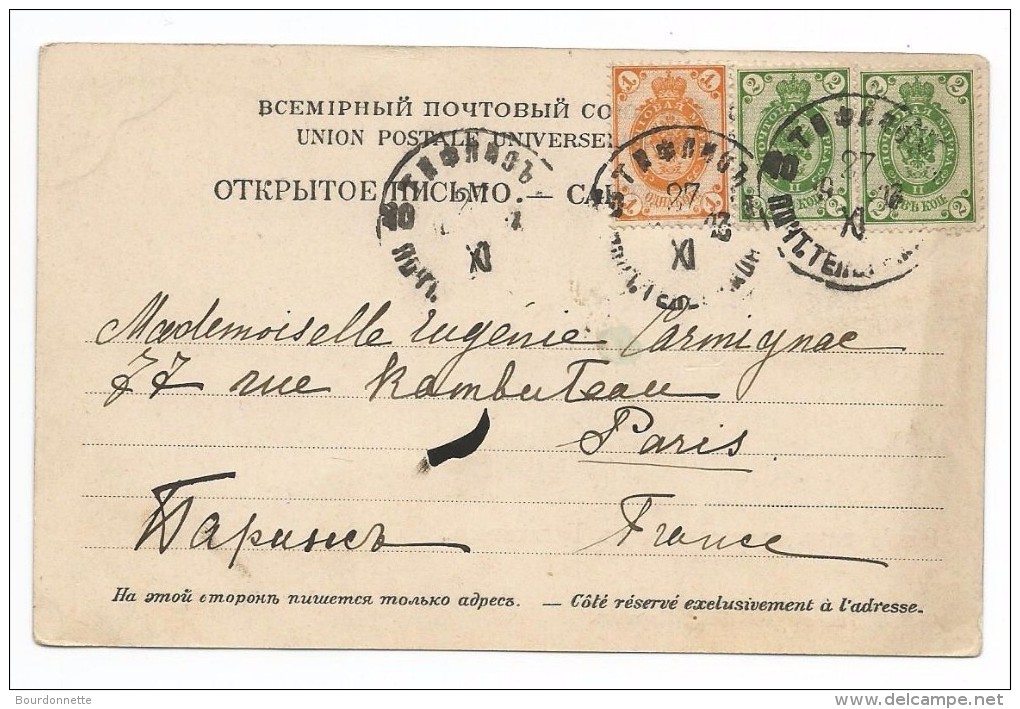 ВСЕМІРНЫЙ ПОЧТОВЫЙ СО
UNION POSTALE UNIVERSE
ОТКРЫТОЕ ПИСЬМО. — CAR
1 1
1 1
2 2
2 2
2 2
2 2
ТИФЛИСЪ
XI
ПОЧТ.
ТИФЛИСЪ
27
XI
ТИФЛИСЪ
27
XI
ПОЧТ. ТЕЛ
Mademoiselle Eugénie Carmignac
77 rue Rambuteau
Paris
Парижъ France
На этой сторонѣ пишется только адресъ. — Côté réservé exclusivement à l'adresse.
Bourdonnette
www.delcampe.net